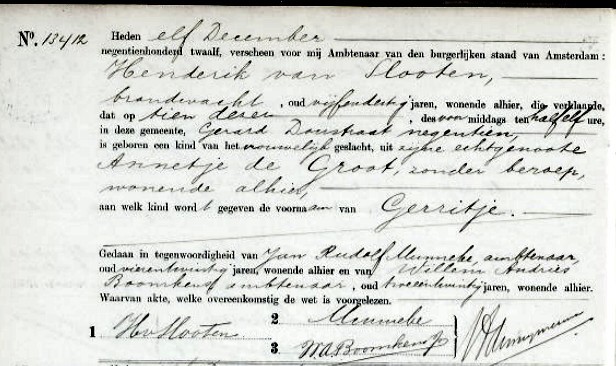 Nº. 13412 Heden elf December
negentienhonderd twaalf, verscheen voor mij Ambtenaar van den burgerlijken stand van Amsterdam:
Henderik van Slooten,
brandwacht, oud vijfendertig jaren, wonende alhier, die verklaarde,
dat op tien dezer, des voormiddags ten half elf ure,
in deze gemeente, Gerard Doustraat negentien,
is geboren een kind van het vrouwelijk geslacht, uit zijne echtgenoote
Annetje de Groot, zonder beroep,
wonende alhier,
aan welk kind wordt gegeven de voornaam van Gerritje.
Gedaan in tegenwoordigheid van Jan Rudolf Munneke, ambtenaar,
oud vierentwintig jaren, wonende alhier en van Willem Andries
Boomkens ambtenaar, oud tweeentwintig jaren, wonende alhier.
Waarvan akte, welke overeenkomstig de wet is voorgelezen.
1 HvSlooten
2 Munneke
3. W.A. Boomkens